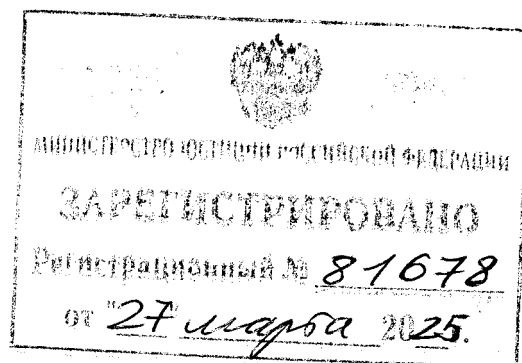 МИНИСТЕРСТВО ЮСТИЦИИ РОССИЙСКОЙ ФЕДЕРАЦИИ
ЗАРЕГИСТРИРОВАНО
Регистрационный № 81678
от "27" марта 2025.